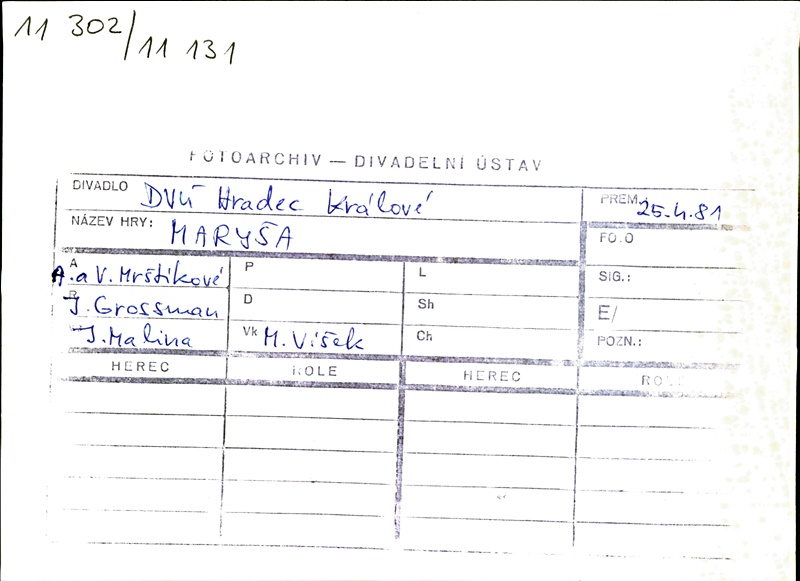 11 302/11 131
FOTOARCHIV — DIVADELNÍ ÚSTAV
DIVADLO DVÚ Hradec Králové
PREM. 25.4.81
NÁZEV HRY: MARYŠA
FO.O
A A. a V. Mrštíkové
P
L
SIG.:
R J. Grossman
D
Sh
E/
J. Malina
Vk M. Víšek
Ch
POZN.:
HEREC ROLE HEREC ROLE